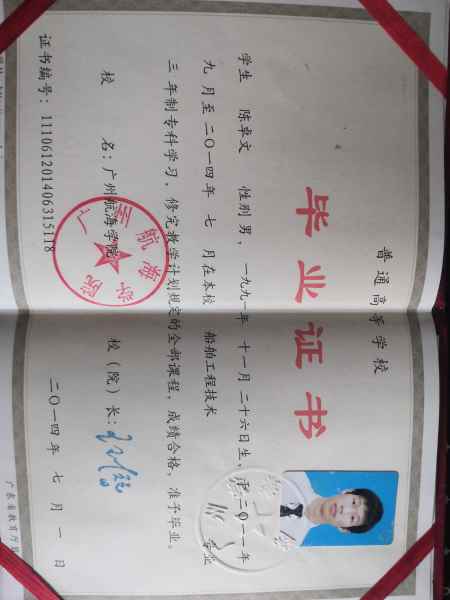 普通高等学校
毕业证书
学生 陈卓文 性别 男, 一九九一年 十一月 二十六日生, 于二〇一一年
九 月至二〇一四年 七 月在本校 船舶工程技术 专业
三 年制专科学习, 修完教学计划规定的全部课程, 成绩合格, 准予毕业。
校 名: 广州航海学院 校(院)长:
证书编号: 111061201406315118 二〇一四年 七 月 一 日
广东省教育厅